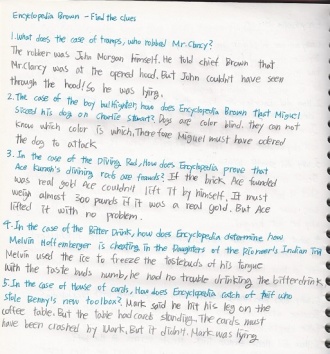 Encyclopedia Brown - Find the clues
1. What does the case of tramps, who robbed Mr. Clancy?
The robber was John Morgan himself. He told chief Brown that
Mr. Clancy was at the opened hood. But John couldn't have seen
through the hood! So he was lying.
2. The case of the boy bullfighter, how does Encyclopedia Brown that Miguel
sicced his dog on Charlie Stewart? Dogs are color blind. they can not
know which color is which. Therefore Miguel must have ordered
the dog to attack
3. In the case of the Divining Rod, How does Encyclopedia prove that
Ace Kurash's divining rods are frauds? If the brick Ace founded
was real gold Ace couldn't lift it by himself. It must
weigh almost 300 pounds if it was a real gold. But Ace
lifted it with no problem.
4. In the case of the Bitter Drink, how does Encyclopedia determine how
Melvin Hoffenberger is cheating in the Daughters of the Pioneer's Indian
Melvin used the ice to freeze the tastebuds of his tongue
with the taste buds numb, he had no trouble drinking the bitter drink
5. In the case of House of cards, How does Encyclopedia catch of thief who
stole Benny's new toolbox? Mark said he hit his leg on the
coffee table. But the table had cards standing. The cards must
have been crashed by Mark. But it didn't. Mark was lying